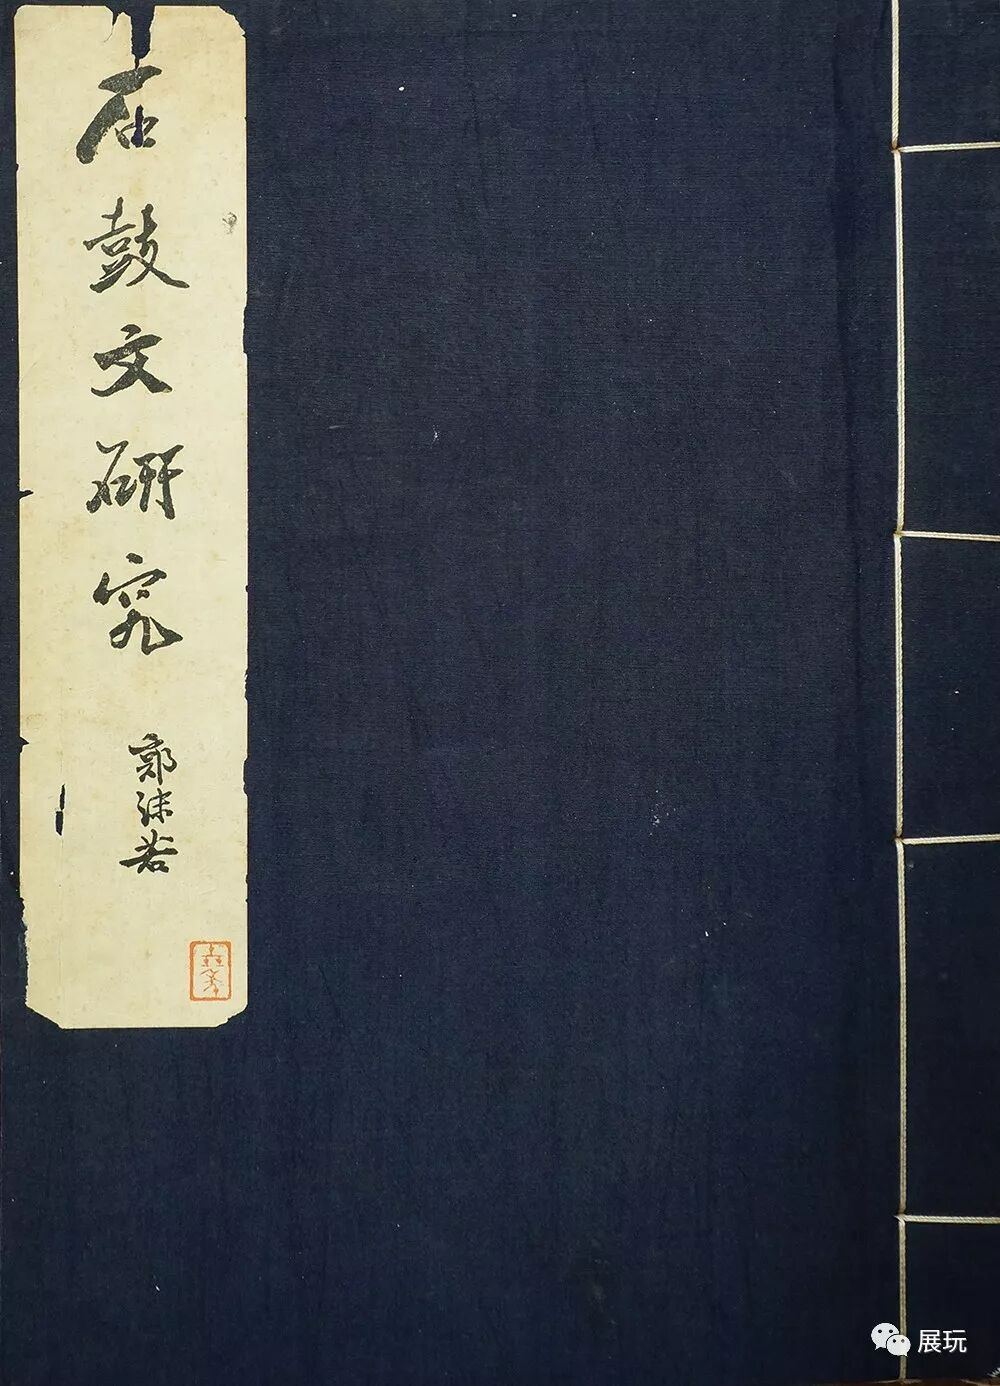 石鼓文研究
郭沫若
展玩